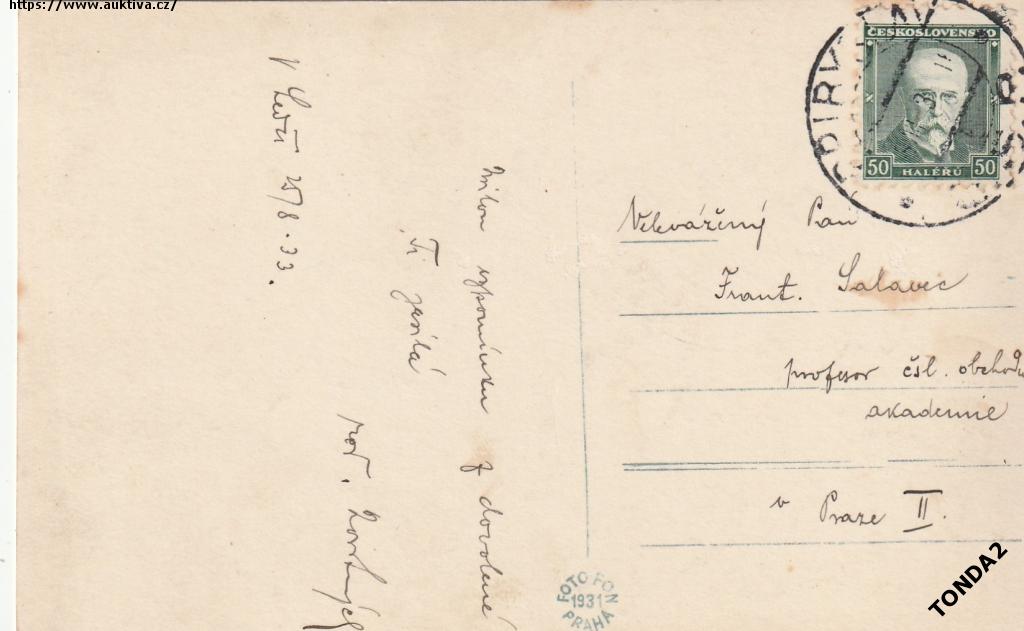 https://www.auktiva.cz/
25/8.33.
Milou vzpomínku z dovolené
Ti zasílá
rod.
ČESKOSLOVENSKO
50 HALÉŘŮ 50
Velevážený Pan
Frant. Salavec
profesor čsl. obchodn
akademie
v Praze II.
FOTO FON
1931
PRAHA
TONDA2